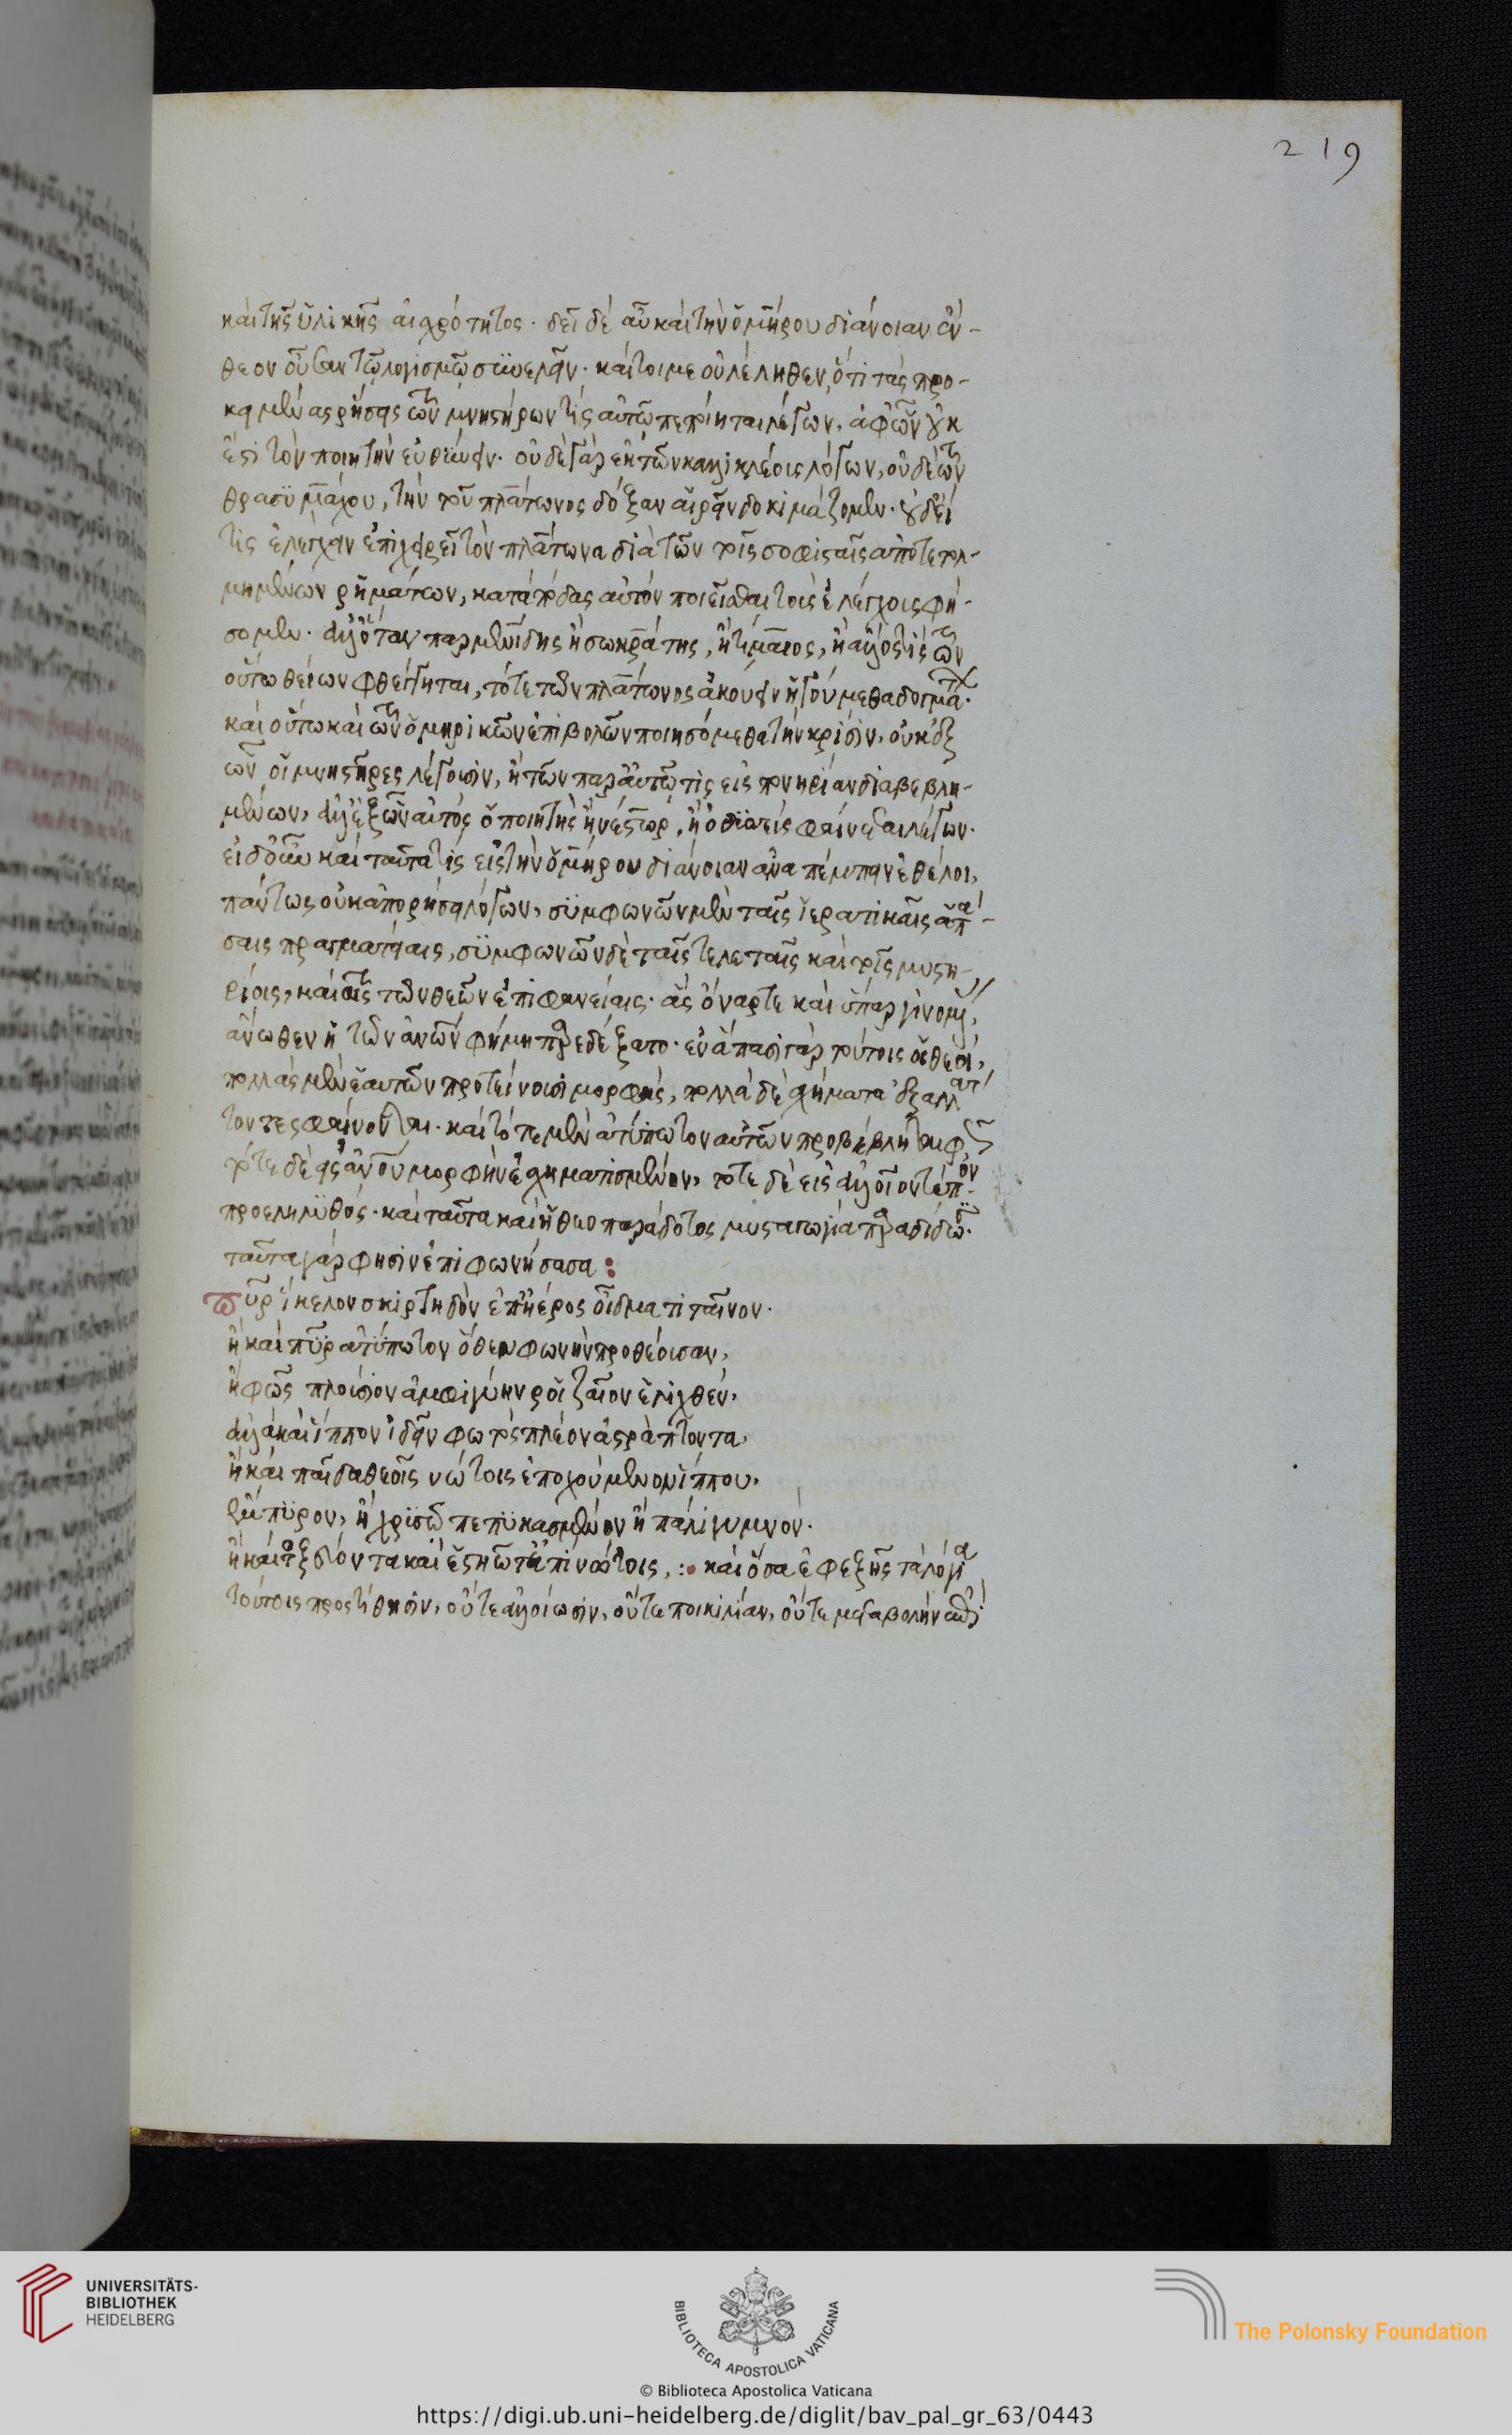 219
καὶ τῆς ὑλικῆς αἰσχρότητος. δεῖ δὲ αὖ καὶ τὴν ὁμήρου διάνοιαν ἔν-
θεον οὖσαν τῷ λογισμῷ συνελεῖν. καίτοι με οὐ λέληθεν, ὅτι τὰς προ-
κειμένας ῥήσεις τῶν μνηστήρων τίς αὐτῷ πεποίηται λέγων, ἀφ' ὧν οὐκ
ἔστι τὸν ποιητὴν εὐθύνειν. οὐδὲ γὰρ ἐκ τῶν καλλικλέοις λόγων, οὐδὲ τῶν
θρασυμάχου, τὴν τοῦ πλάτωνος δόξαν αἱρεῖν δοκιμάζομεν. οὐδ' εἴ
τις ἐλέγχειν ἐπιχειρεῖ τὸν πλάτωνα διὰ τῶν τοῖς σοφισταῖς ἀποτετολ-
μημένων ῥημάτων, κατὰ πόδας αὐτὸν ποιεῖσθαι τοὺς ἐλέγχοις φή-
σομεν. ἀλλ' ὅταν παρμενίδης ἢ σωκράτης, ἢ τίμαιος, ἢ ἄλλος τὶς τῶν
οὕτω θείων φθέγγηται, τότε τῶν πλάτωνος ἀκούειν ἡγούμεθα δογμάτων.
καὶ οὕτω καὶ τῶν ὁμηρικῶν ἐπιβολῶν ποιησόμεθα τὴν κρίσιν, οὐκ ἐξ
ὧν οἱ μνηστῆρες λέγουσιν, ἢ τῶν παρ' αὐτῷ τὶς εἰς πονηρίαν διαβεβλη-
μένων, ἀλλ' ἐξ ὧν αὐτὸς ὁ ποιητὴς ἢ νέστωρ, ἢ ὀδυσσεὺς φαίνεται λέγων.
εἰ δ' οὖν καὶ ταῦτα τὶς εἰς τὴν ὁμήρου διάνοιαν ἀναπέμπειν ἐθέλοι,
πάντως οὐκ ἀπορήσει λόγων, συμφωνῶν μὲν ταῖς ἱερατικαῖς ἁπά-
σαις πραγματείαις, συμφωνῶν δὲ ταῖς τελεταῖς καὶ τοῖς μυστη-
ρίοις, καὶ ταῖς τῶν θεῶν ἐπιφανείαις. ἃς ὄναρ τε καὶ ὕπαρ γινομένας
ἄνωθεν ἡ τῶν ἀνθρώπων φήμη παρεδέξατο. ἐν ἅπασι γὰρ τούτοις οἱ θεοὶ,
πολλὰς μὲν ἑαυτῶν προτείνουσι μορφὰς, πολλὰ δὲ σχήματα ἐξαλλάτ
τοντες φαίνονται. καὶ τότε μὲν ἀτύπωτον αὐτῶν προβέβληται φῶς
τότε δὲ εἰς ἀνθρώπου μορφὴν ἐσχηματισμένον, τότε δὲ εἰς ἀλλοῖον τύπον
προεληλυθός. καὶ ταῦτα καὶ ἡ θεοπαράδοτος μυσταγωγία παραδίδωσιν.
ταῦτα γάρ φησιν ἐπιφωνήσασα:
πῦρ ἴκελον σκιρτηδὸν ἐπ' ἠέρος οἶδμα τιταῖνον.
ἢ καὶ πῦρ ἀτύπωτον ὅθεν φωνὴν προθέουσαν,
ἢ φῶς πλούσιον ἀμφιγύην ῥοιζαῖον ἑλιχθέν.
ἀλλὰ καὶ ἵππον ἰδεῖν φωτὸς πλέον ἀστράπτοντα,
ἢ καὶ παῖδα θεοῖς νώτοις ἐποχούμενον ἵππου,
ἔμπυρον, ἢ χρυσῷ πεπυκασμένον ἢ πάλι γυμνόν.
ἢ καὶ τοξεύοντα καὶ ἑστηῶτ' ἐπὶ νώτοις, : καὶ ὅσα ἐφεξῆς τὰ λόγια
τούτοις προστίθησιν, οὔτε ἀλλοίωσιν, οὔτε ποικιλίαν, οὔτε μεταβολὴν
UNIVERSITÄTS-
BIBLIOTHEK
HEIDELBERG
BIBLIOTECA APOSTOLICA VATICANA
The Polonsky Foundation
© Biblioteca Apostolica Vaticana
https://digi.ub.uni-heidelberg.de/diglit/bav_pal_gr_63/0443